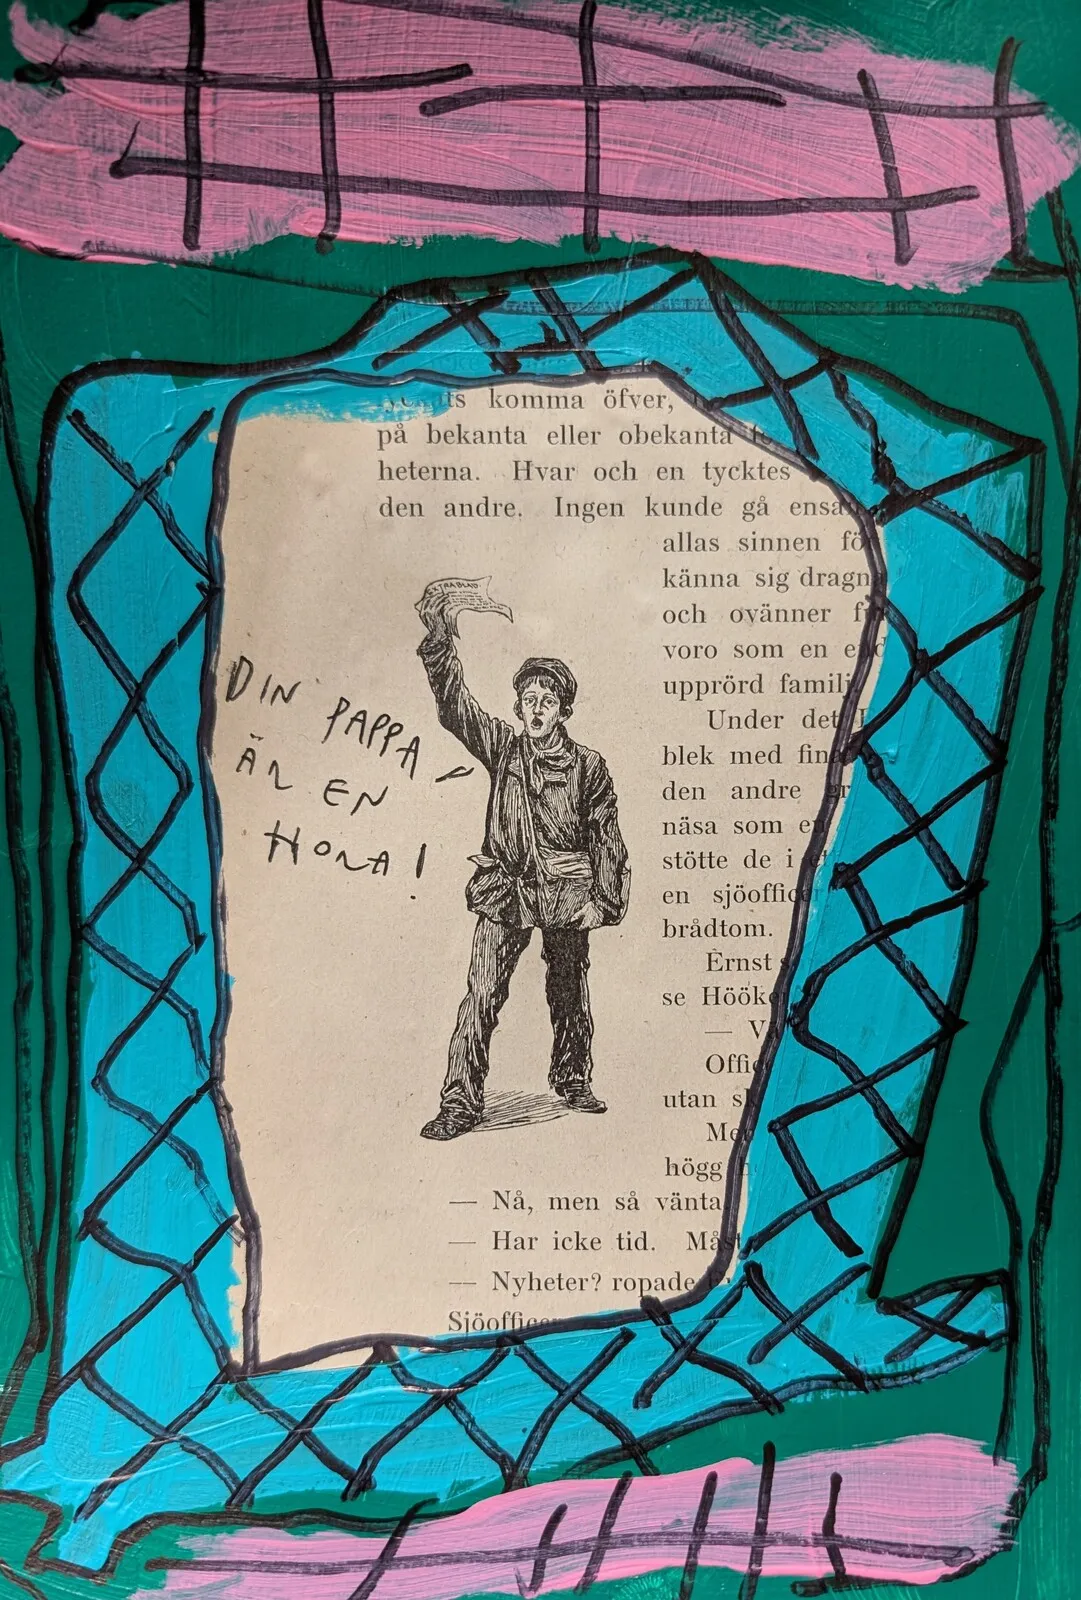 komma öfver,
på bekanta eller obekanta
heterna. Hvar och en tycktes
den andre. Ingen kunde gå ensa
allas sinnen fö
känna sig dragn
och ovänner f
voro som en e
upprörd familj.
Under det
blek med fin
den andre gr
näsa som e
stötte de i
en sjöoffic
brådtom.
Ernst
se Höök
— V
Offic
utan s
Me
högg
— Nå, men så vänta
— Har icke tid. Måst
— Nyheter? ropade
Sjöoffice
EXTRABLAD.
DIN PAPPA
ÄR EN
HORA!